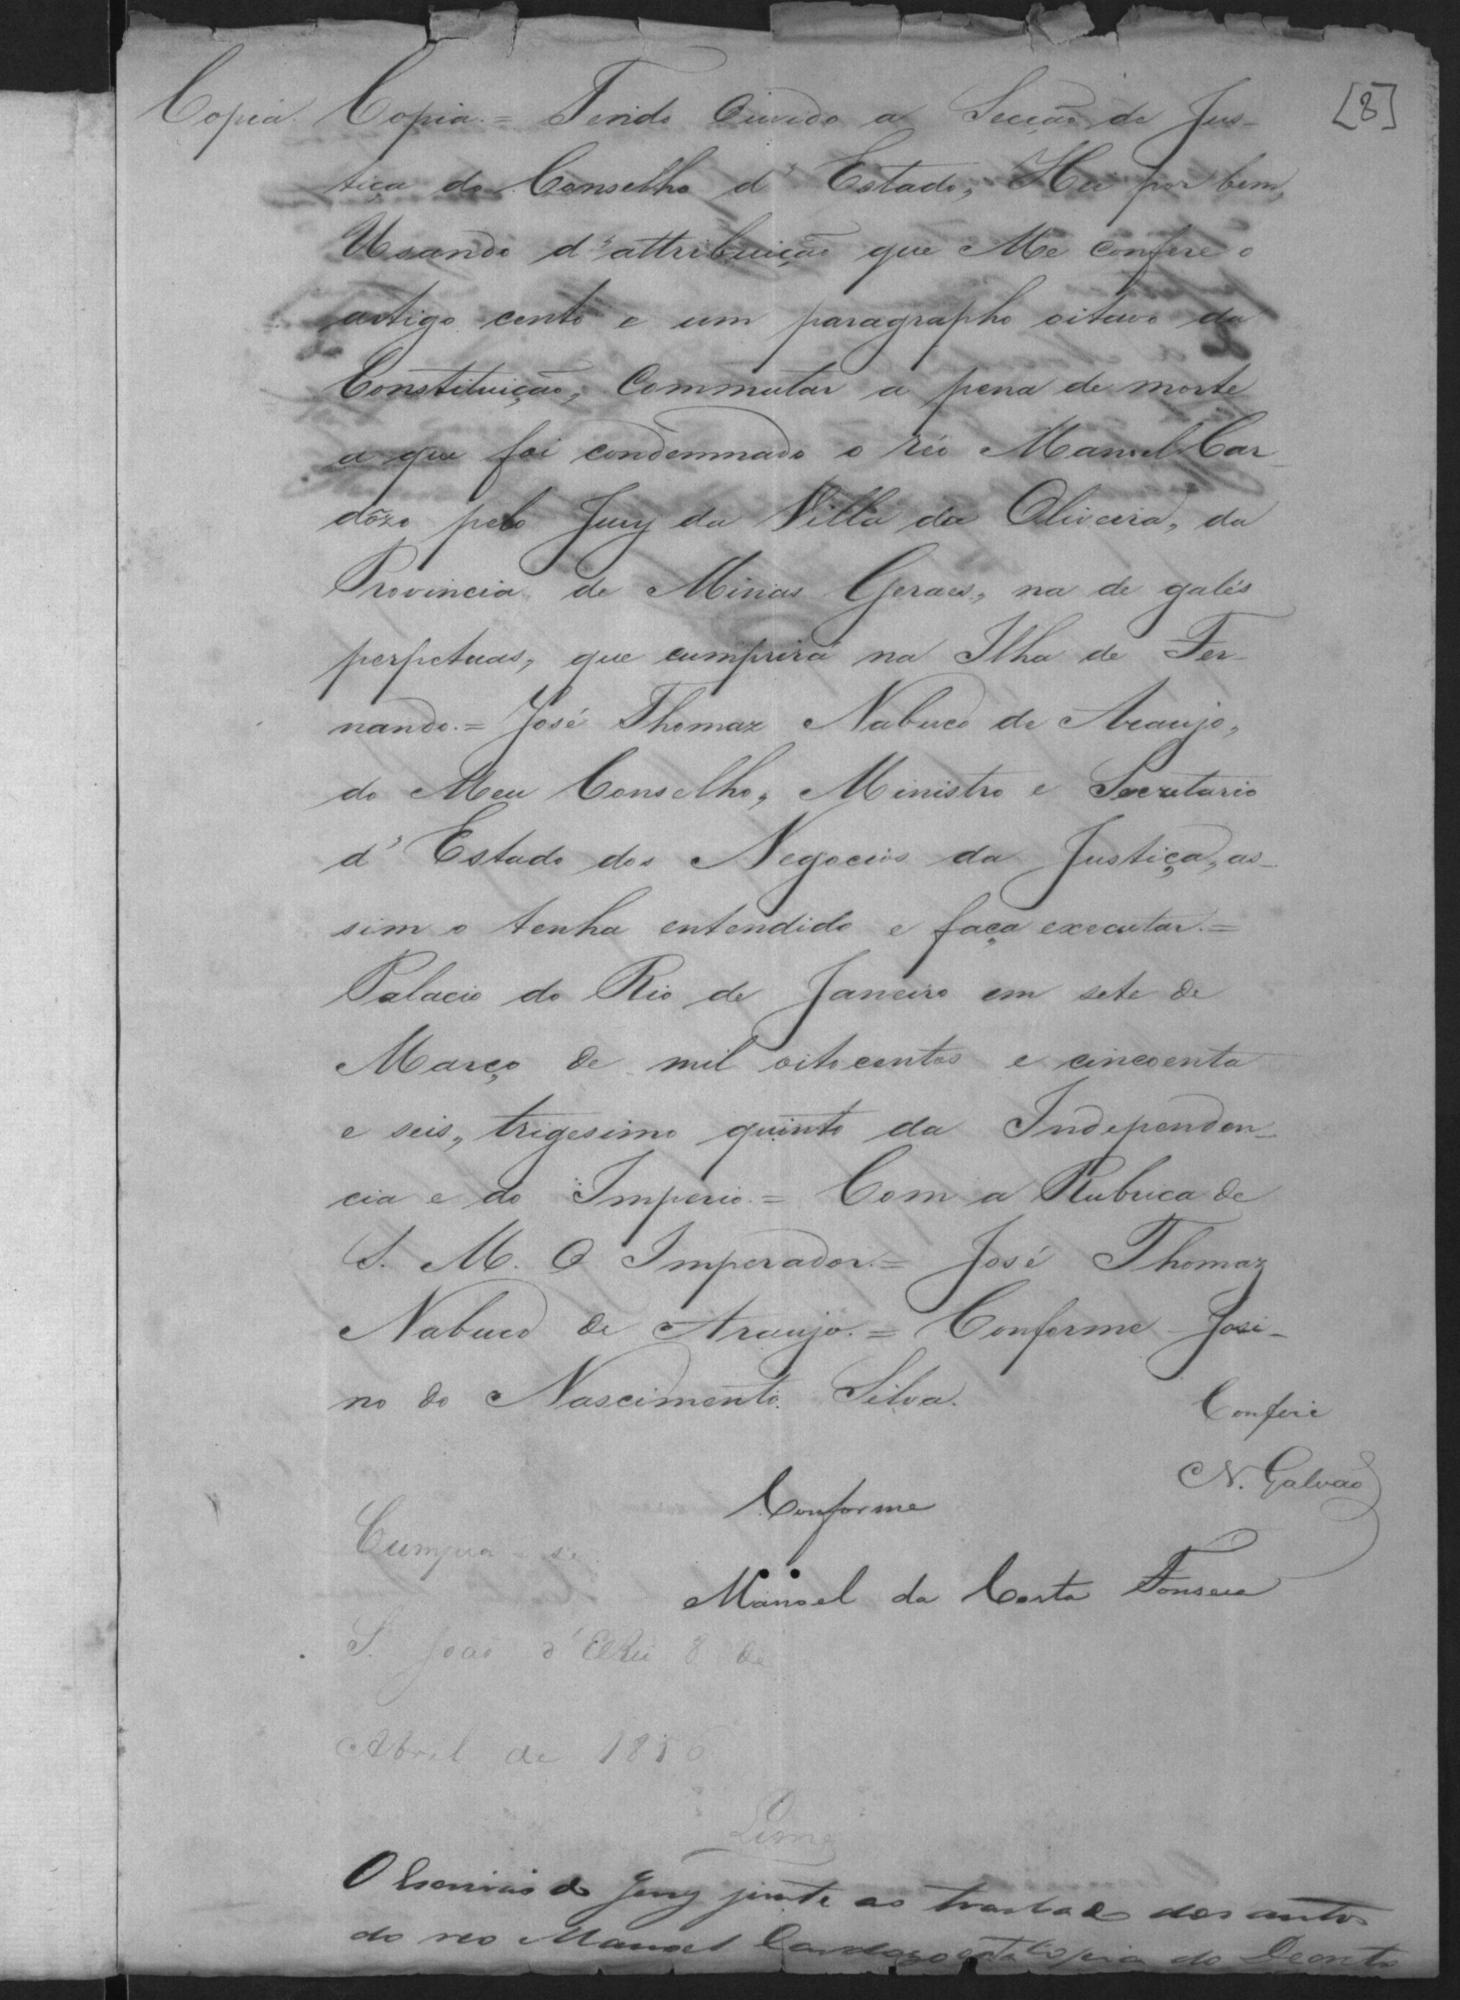 [8]
Copia. Copia. = Tendo Ouvido a Secção de Jus-
tiça do Conselho d'Estado, Hei por bem,
Usando d'attribuição que Me confere o
artigo cento e um paragrapho oitavo da
Constituição, Commutar a pena de morte
a que foi condemnado o réo Manoel Car-
dôzo pelo Jury da Villa da Oliveira, da
Provincia de Minas Geraes, na de galés
perpetuas, que cumprirá na Ilha de Fer-
nando. = José Thomaz Nabuco de Araujo,
do Meu Conselho, Ministro e Secretario
d'Estado dos Negocios da Justiça, as-
sim o tenha entendido e faça executar. =
Palacio do Rio de Janeiro em sete de
Março de mil oitocentos e cincoenta
e seis, trigesimo quinto da Independen-
cia e do Imperio. = Com a Rubrica de
S. M. O Imperador. = José Thomaz
Nabuco de Araujo. = Conforme Josi-
no do Nascimento Silva.
Confere
N. Galvão
Conforme
Manoel da Costa Fonseca
Cumpra-se
S. João d'ElRei 8 de
Abril de 1856
Lima
O Escrivão do Jury junte ao traslado dos autos
do reo Manoel Cardozo esta Copia do Decreto